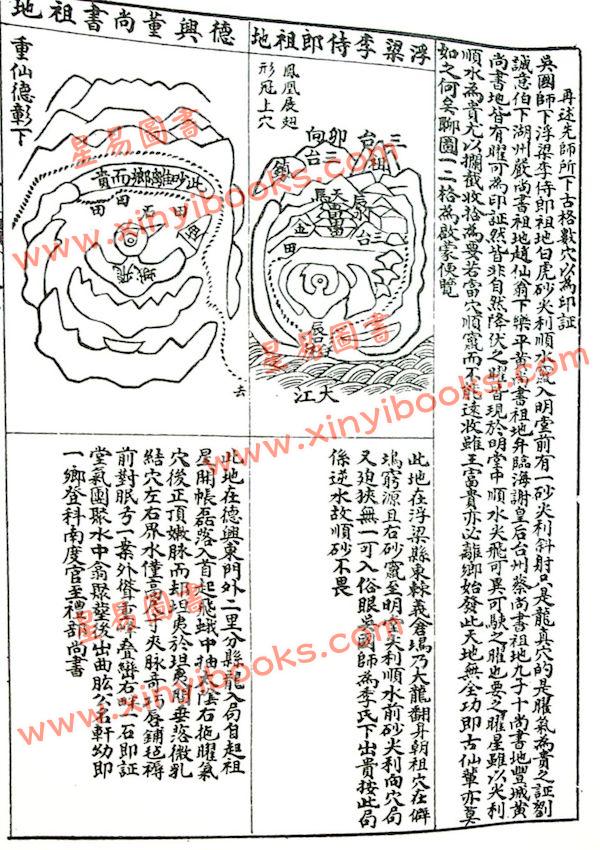 再述先師所下古格數穴以為印証
吳國師下浮梁李侍郎祖地白虎砂尖利順水竄入明堂前有一砂尖利斜射只是龍真穴的是曜氣為貴之証劉
誠意伯下湖州嚴尚書祖地趙仙翁下樂平黃尚書祖地并臨海謝皇后台州蔡尚書祖地九子十尚書地豐城黃
尚書地皆有曜可為印証然皆非自然降伏之曜皆現於明堂中順水尖飛可異可駛之曜也要之曜星雖以尖利
順水為貴尤以攔截收拾為要若當穴順竄而不能遠收雖王富貴亦必離鄉始發此天地無全功即古仙輩亦莫
如之何矣聊圖一二格為啟蒙便覽
浮梁李侍郎祖地
鳳凰展翅
形冠上穴
三台
祖
卯向
三台
鎮
天
辰
富
金
田
台
大江
此地在浮梁縣東棘義倉塢乃大龍翻身朝祖穴在僻
塢窮源且右砂竄至明堂尖利順水前砂尖利向穴局
又迫狹無一可入俗眼吳國師為李氏下出貴按此局
係逆水故順砂不畏
德興董尚書祖地
重仙德彰下
此砂離鄉而貴
田
田
去
此地在德興東門外二里分縣龍入局自起祖
星開帳磊落入首起飛蛾中抽
右拖曜氣
穴後正頂嫩脉而却坦夷於坦夷間垂落微乳
結穴左右界水僅高尺寸夾脉奇巧唇鋪毡褥
前對眠弓一案外聳
峰叠巒右畔一石即証
堂氣團聚水中
聚
後出曲肱公名軒幼即
一鄉登科南度官至禮部尚書
星易圖書
www.xinyibooks.com
星易圖書
www.xinyibooks.com
星易圖書
www.xinyibooks.com
星易圖書
www.xinyibooks.com